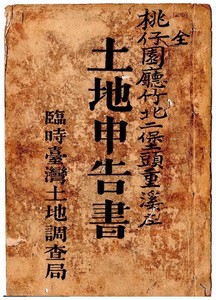 全
桃仔園廳竹北二保頭重溪庄
土地申告書
臨時臺灣土地調查局